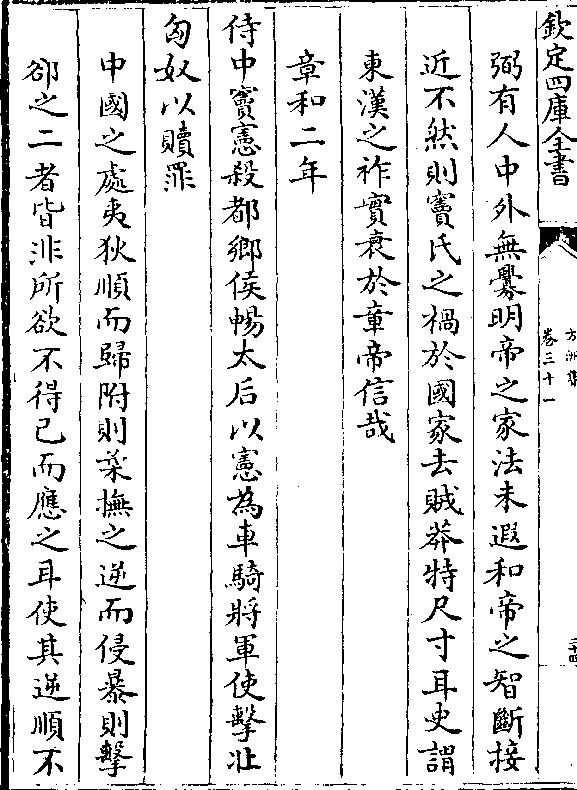 欽定四庫全書
方洲集
卷三十一
二十四
弼有人中外無釁明帝之家法未遐和帝之智斷接
近不然則竇氏之禍於國家去賊莽特尺寸耳史謂
東漢之祚實衰於章帝信哉
章和二年
侍中竇憲殺都鄉侯暢太后以憲為車騎將軍使擊北
匈奴以贖罪
中國之處夷狄順而歸附則柔撫之逆而侵暴則擊
郤之二者皆非所欲不得已而應之耳使其逆順不